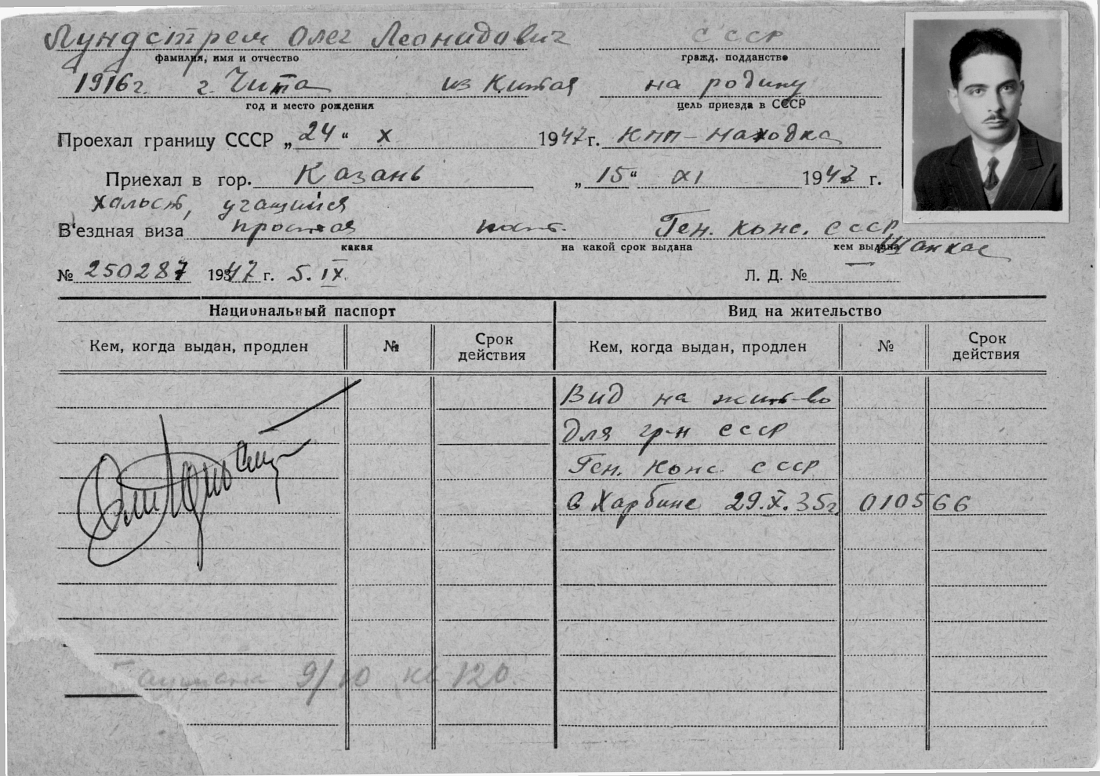 Лундстрем Олег Леонидович СССР
фамилия, имя и отчество гражд. подданство
1916г. г. Чита из Китая на родину
год и место рождения цель приезда в СССР
Проехал границу СССР „24“ X 1947г. КПП-Находка
Приехал в гор. Казань „15“ XI 1947 г.
холост, учащийся
В'ездная виза простая Ген. Конс. СССР
какая на какой срок выдана кем выдана
Шанхае
№ 250287 1947 г. 5. IX. Л. Д. №
Национальный паспорт Вид на жительство
Кем, когда выдан, продлен № Срок действия Кем, когда выдан, продлен № Срок действия
Вид на жит-во
для гр-н СССР
Ген. Конс. СССР
в Харбине 29.X.35г. 010566
9/10 кв 120